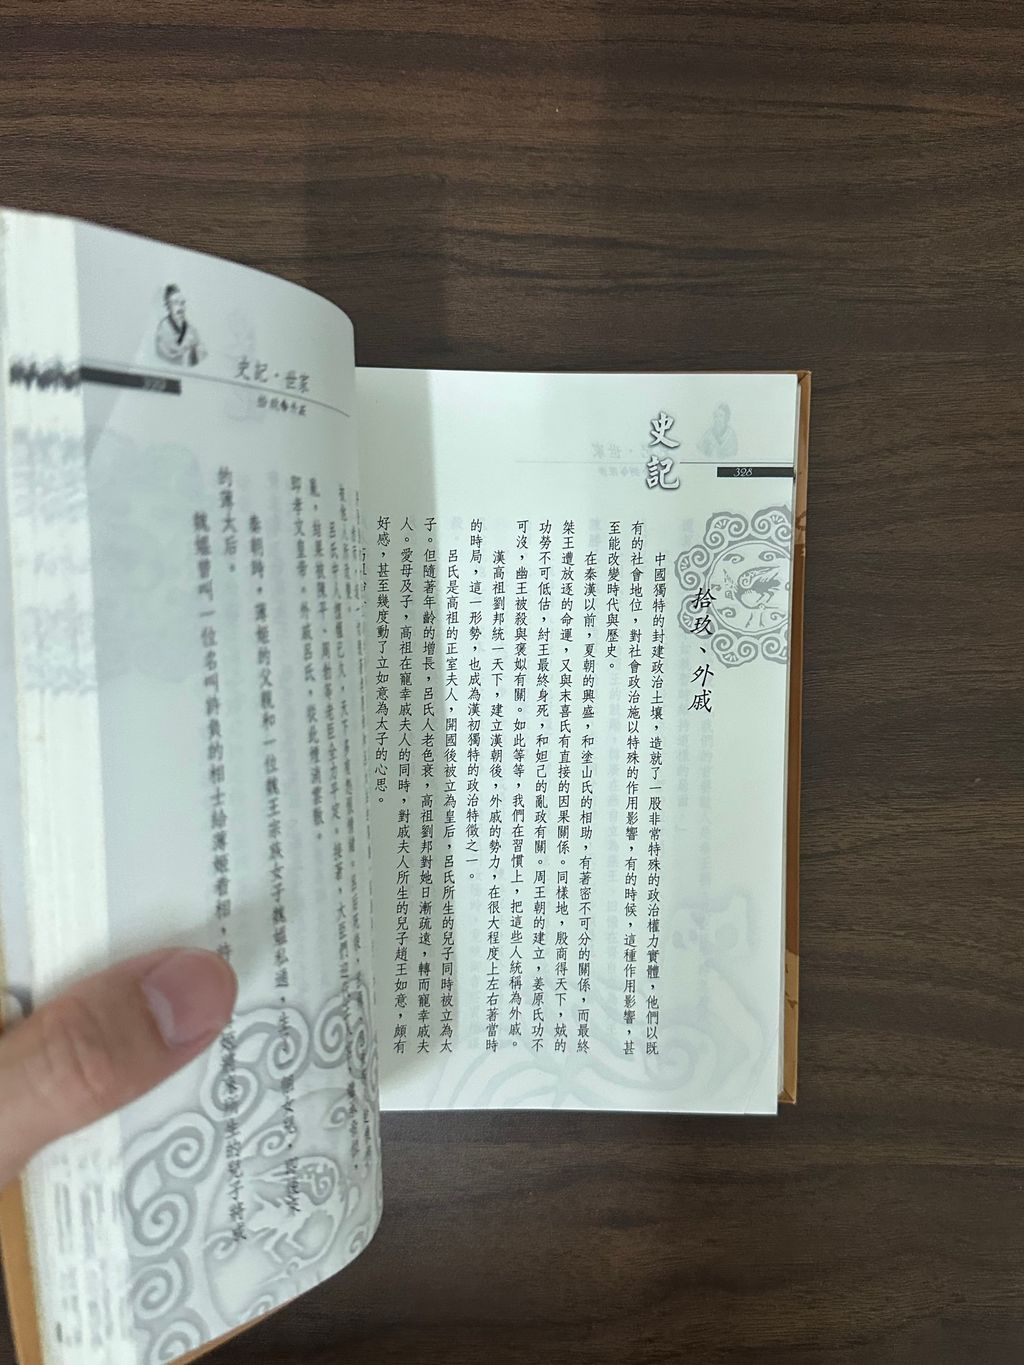 史記
328
拾玖、外戚
中國獨特的封建政治土壤，造就了一股非常特殊的政治權力實體，他們以既
有的社會地位，對社會政治施以特殊的作用影響，有的時候，這種作用影響，甚
至能改變時代與歷史。
在秦漢以前，夏朝的興盛，和塗山氏的相助，有著密不可分的關係，而最終
桀王遭放逐的命運，又與末喜氏有直接的因果關係。同樣地，殷商得天下，娀的
功勞不可低估，紂王最終身死，和妲己的亂政有關。周王朝的建立，姜原氏功不
可沒，幽王被殺與褒姒有關。如此等等，我們在習慣上，把這些人統稱為外戚。
漢高祖劉邦統一天下，建立漢朝後，外戚的勢力，在很大程度上左右著當時
的時局，這一形勢，也成為漢初獨特的政治特徵之一。
呂氏是高祖的正室夫人，開國後被立為皇后，呂氏所生的兒子同時被立為太
子。但隨著年齡的增長，呂氏人老色衰，高祖劉邦對她日漸疏遠，轉而寵幸戚夫
人。愛母及子，高祖在寵幸戚夫人的同時，對戚夫人所生的兒子趙王如意，頗有
好感，甚至幾度動了立如意為太子的心思。
史記·世家
329
呂氏中人握權已久，天下
亂，結果被陳平、周勃等老臣全力平定。接著，大臣們
即孝文皇帝。外戚呂氏，從此煙消雲散。
秦朝時，薄姬的父親和一位魏王宗族女子魏媼私通，生
的薄太后。
魏媼曾叫一位名叫許負的相士給薄姬看相，
所生的兒子將成